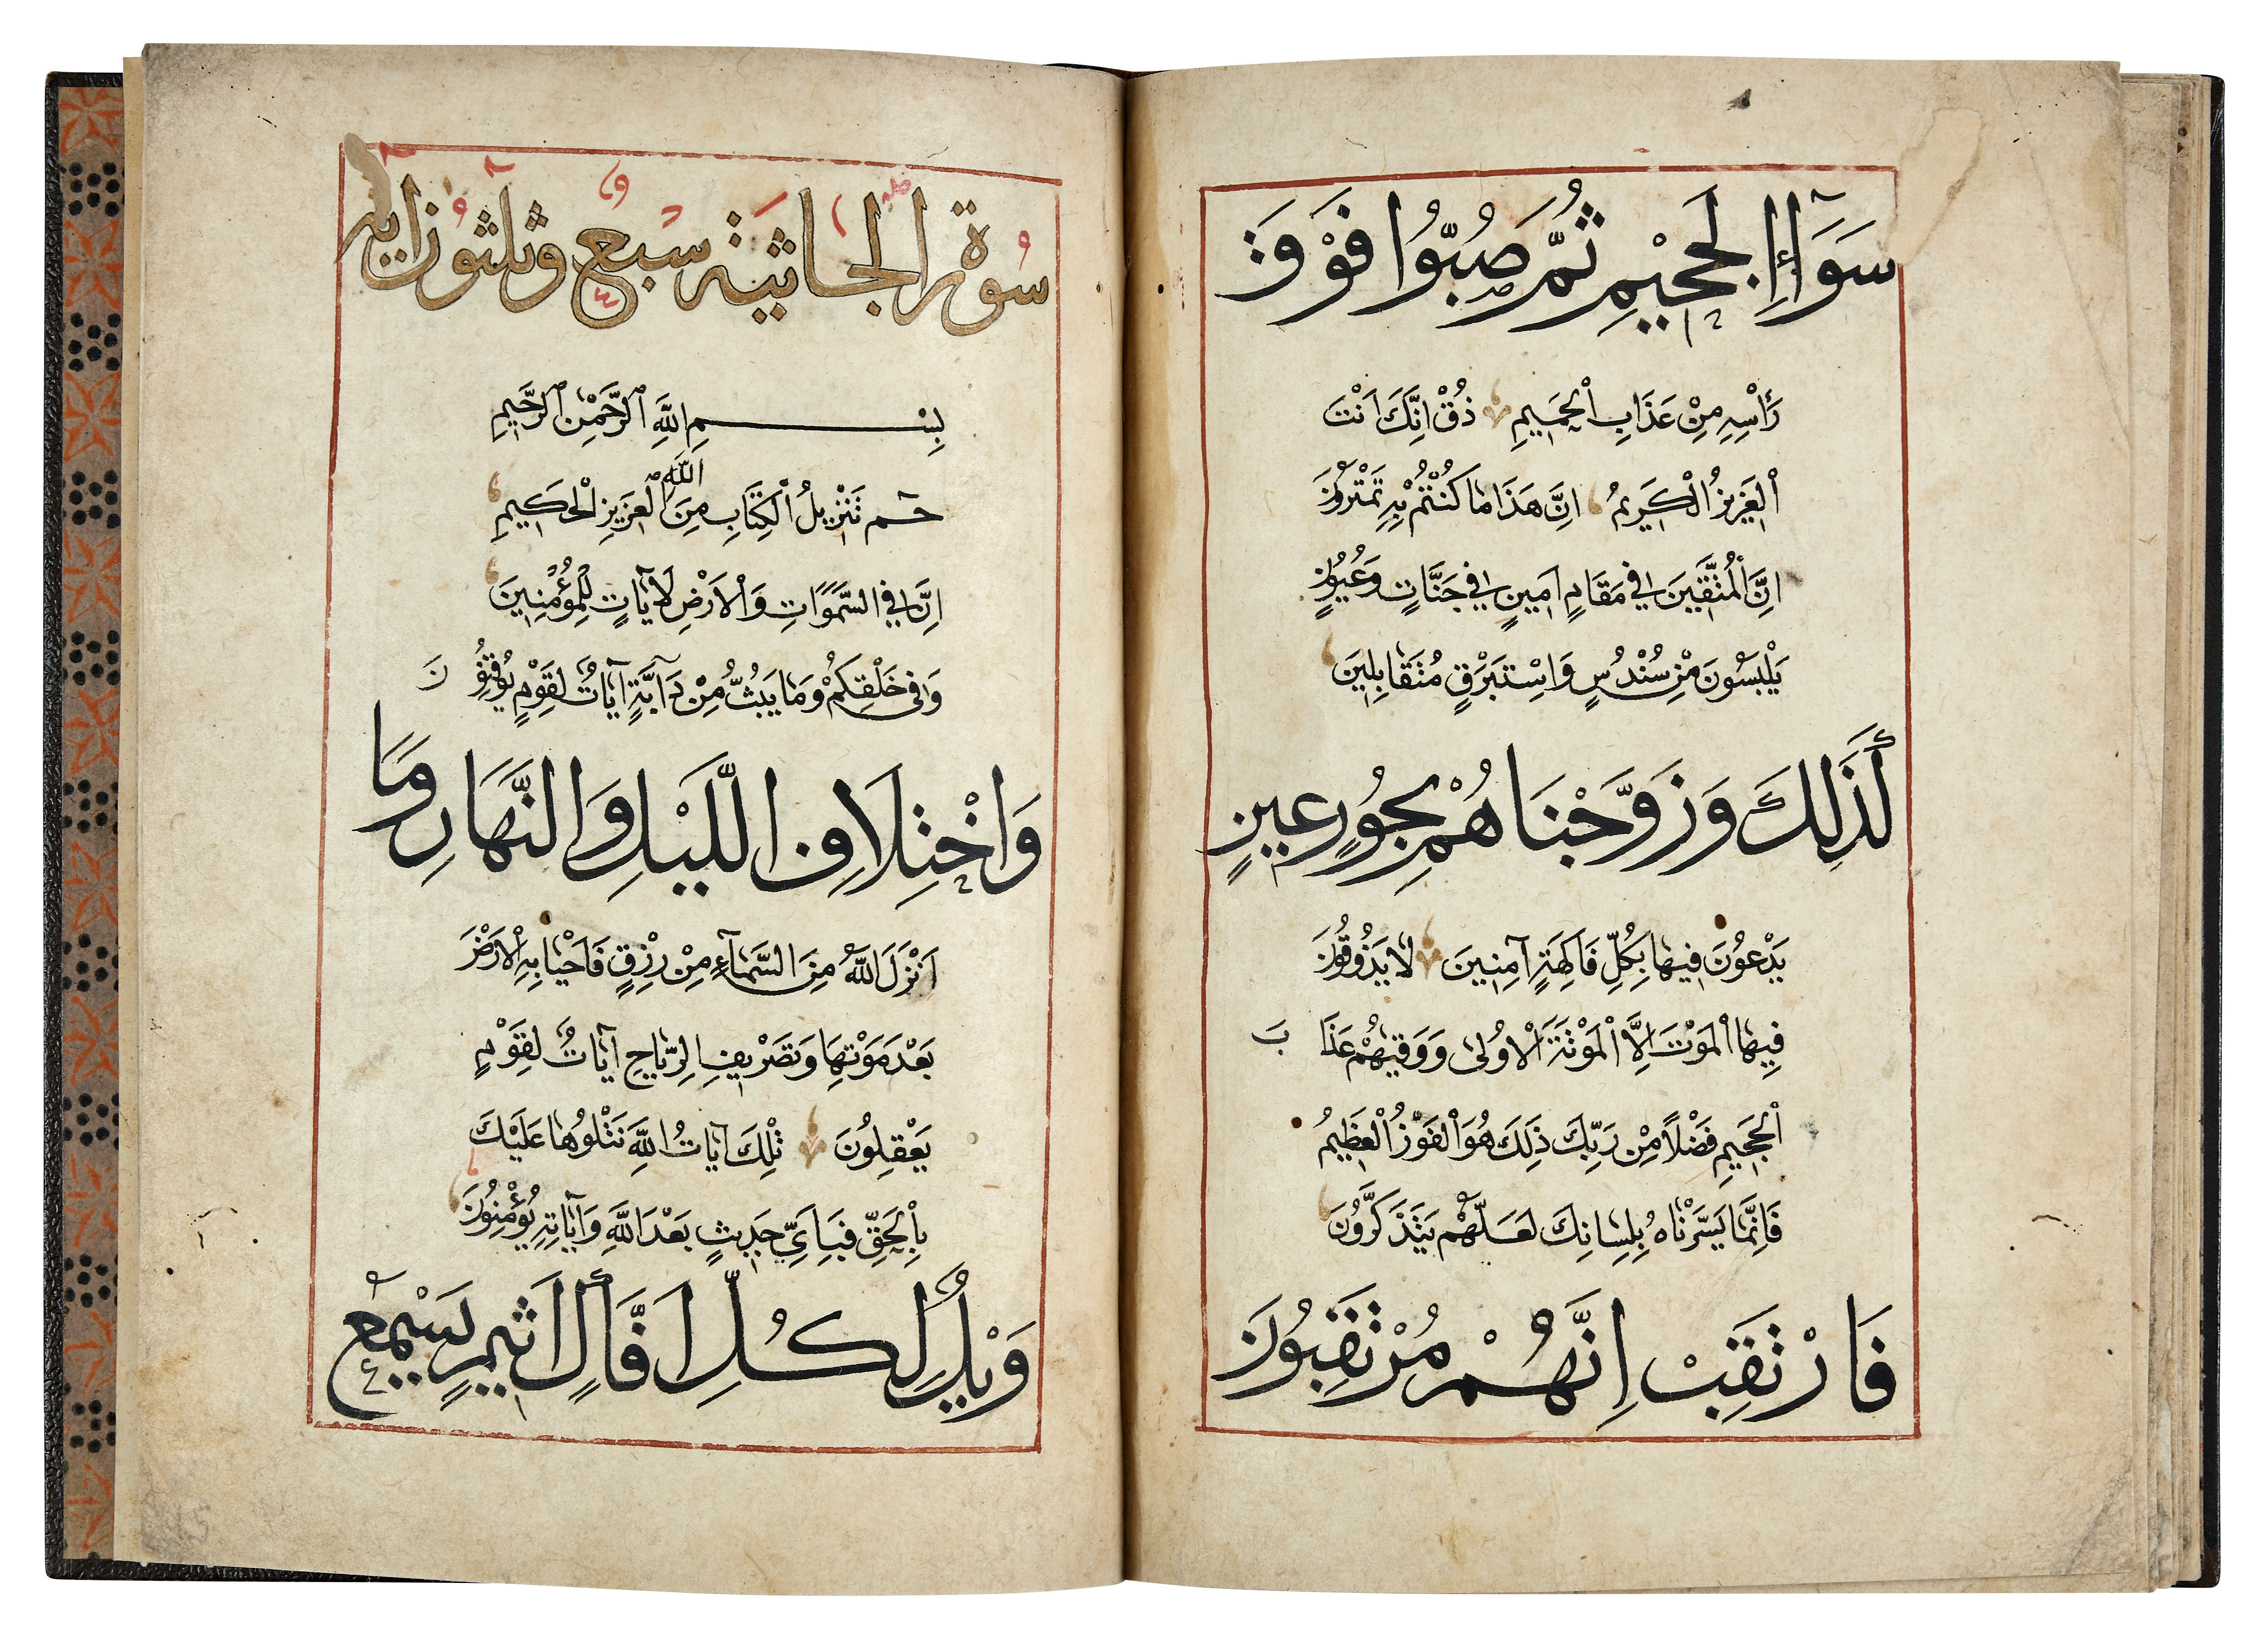 سَوَآءِ الْجَحِيْمِ ثُمَّ صُبُّوْا فَوْقَ
رَأْسِهِ مِنْ عَذَابِ الْحَمِيمِ ذُقْ اِنَّكَ اَنْتَ
الْعَزِيزُ الْكَرِيمُ اِنَّ هَذَا مَا كُنْتُمْ بِهِ تَمْتَرُوْنَ
اِنَّ الْمُتَّقِيْنَ فِي مَقَامٍ اَمِيْنٍ فِي جَنَّاتٍ وَعُيُوْنٍ
يَلْبَسُوْنَ مِنْ سُنْدُسٍ وَاِسْتَبْرَقٍ مُتَقَابِلِيْنَ
كَذَلِكَ وَزَوَّجْنَاهُمْ بِحُوْرٍ عِيْنٍ
يَدْعُوْنَ فِيهَا بِكُلِّ فَاكِهَةٍ آمِنِيْنَ لَا يَذُوْقُوْنَ
فِيهَا الْمَوْتَ اِلَّا الْمَوْتَةَ الْاُولَى وَوَقٰيهُمْ عَذَابَ
الْجَحِيْمِ فَضْلًا مِنْ رَبِّكَ ذَلِكَ هُوَ الْفَوْزُ الْعَظِيْمُ
فَاِنَّمَا يَسَّرْنَاهُ بِلِسَانِكَ لَعَلَّهُمْ يَتَذَكَّرُوْنَ
فَارْتَقِبْ اِنَّهُمْ مُرْتَقِبُوْنَ
سُورة الجاثية سبع وثلثون اية
بِسْمِ اللَّهِ الرَّحْمٰنِ الرَّحِيمِ
حم تَنْزِيلُ الْكِتَابِ مِنَ اللَّهِ الْعَزِيزِ الْحَكِيمِ
اِنَّ فِي السَّمٰوَاتِ وَالْاَرْضِ لَآيَاتٍ لِلْمُؤْمِنِيْنَ
وَفِي خَلْقِكُمْ وَمَا يَبُثُّ مِنْ دَآبَّةٍ آيَاتٌ لِقَوْمٍ يُوْقِنُوْنَ
وَاخْتِلَافِ اللَّيْلِ وَالنَّهَارِ وَمَا
اَنْزَلَ اللَّهُ مِنَ السَّمَآءِ مِنْ رِزْقٍ فَاَحْيَا بِهِ الْاَرْضَ
بَعْدَ مَوْتِهَا وَتَصْرِيْفِ الرِّيَاحِ آيَاتٌ لِقَوْمٍ
يَعْقِلُوْنَ تِلْكَ آيَاتُ اللَّهِ نَتْلُوْهَا عَلَيْكَ
بِالْحَقِّ فَبِاَيِّ حَدِيْثٍ بَعْدَ اللَّهِ وَآيَاتِهِ يُؤْمِنُوْنَ
وَيْلٌ لِكُلِّ اَفَّاكٍ اَثِيْمٍ يَسْمَعُ